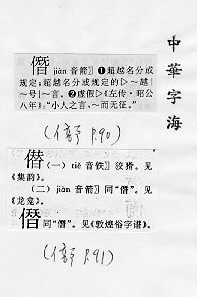 中華字海
僭 jiàn 音箭〗❶超越名分或
规定;超越名分或规定的▷~越|
~号|~言。❷虚假▷《左传·昭公
八年》:“小人之言,~而无征。”
(亻部 P.90)
(一) tiě 音铁〗狡猾。见
《集韵》。
(二) jiàn 音箭〗同“僭”。见
《龙龛》。
同“僭”。见《敦煌俗字谱》。
(亻部 P.91)